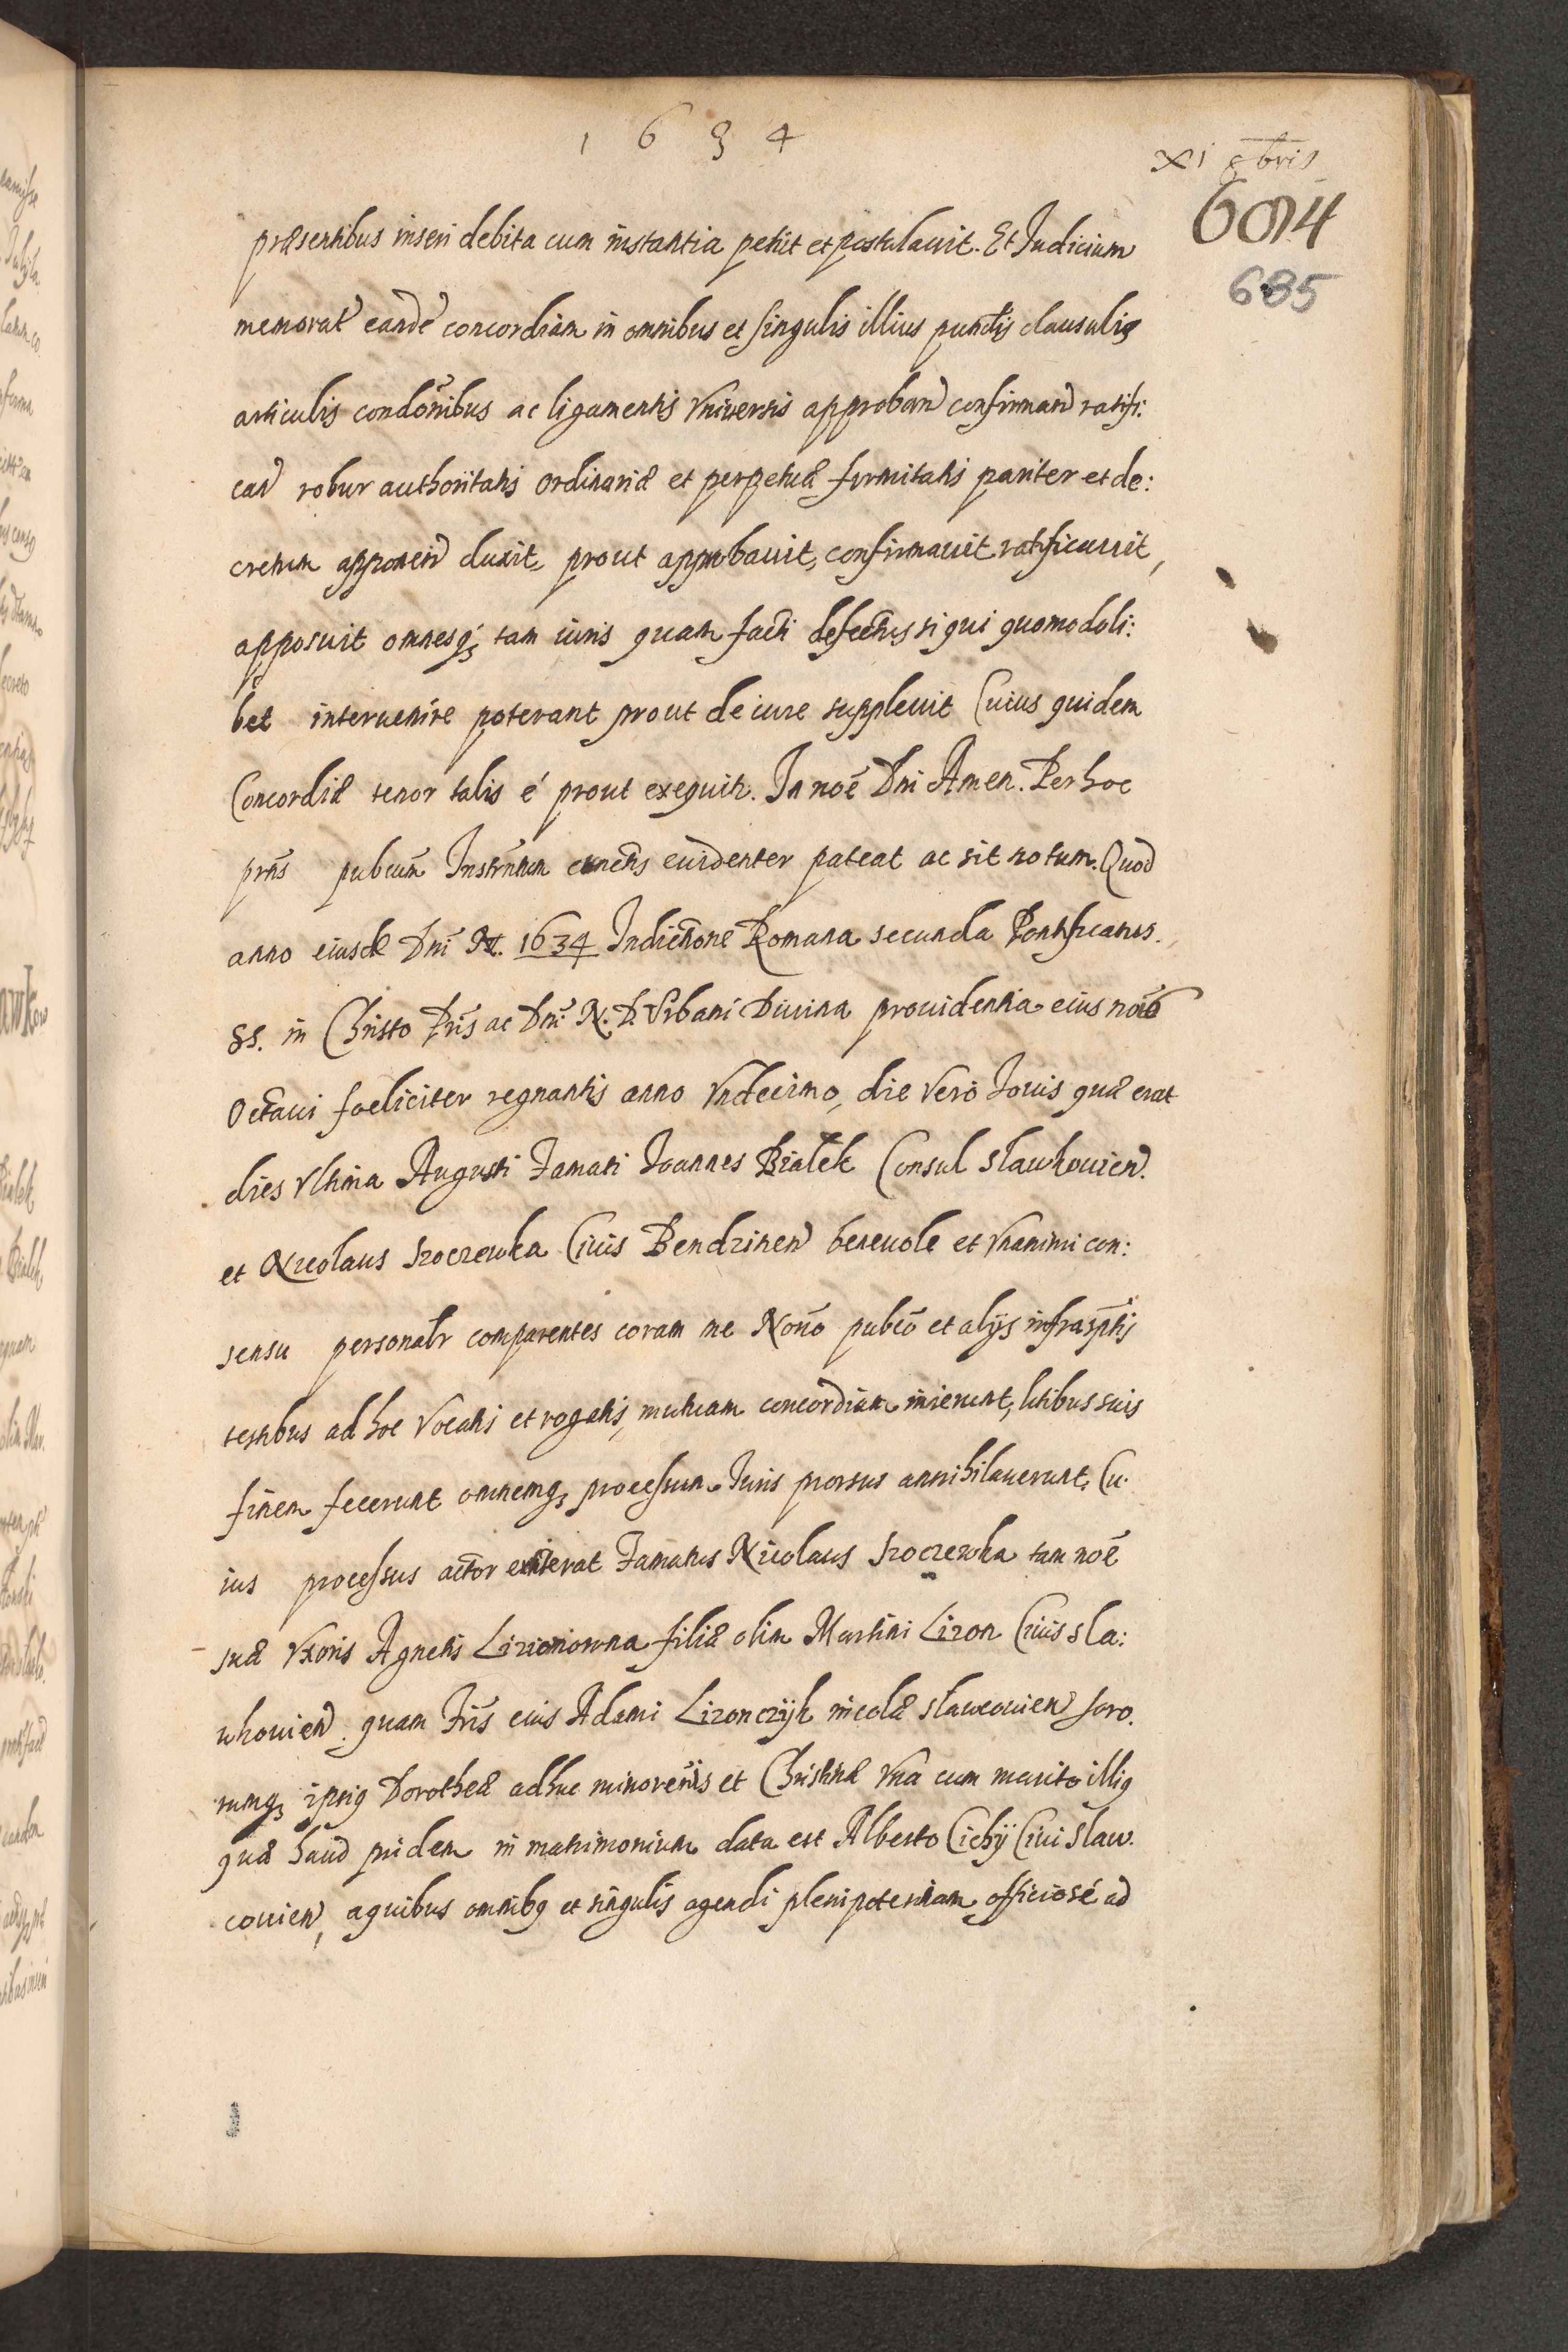 1634
XI 8bris
6014
685
præsentibus inseri debita cum instantia petiit et postulauit. Et Judicium
memorat eandẽ concordiam in omnibus et singulis illius punctis clausulis
articulis condõnibus ac ligamentis vniuersis approband confirmand ratifi:
cand robur authoritatis ordinariæ et perpetuæ firmitatis pariter et de:
cretum apponend duxit, prout approbauit, confirmauit ratificauit,
apposuit omnesq; tam iuris quam facti defectus si qui quomodoli:
bet interuenire poterant prout de iure suppleuit Cuius quidem
Concordiæ tenor talis é prout exequitr. In noẽ Dni Amen. Per hoc
prñs pubcum Instrũtum cunctis euidenter pateat ac sit notum. Quod
anno eiusdẽ Dni M. 1634 Indictione Romana secunda Pontificatus
SS. in Christo Pris ac Dni N. D. Vrbani Diuina prouidentia eius nois
Octaui foeliciter regnantis anno Vndecimo, die Vero Jouis quæ erat
dies Vltima Augusti Famati Joannes Białek Consul Slawkouien.
et Nicolaus Szoczewka Ciuis Bendzinen beneuole et Vnanimi con:
sensu personalr comparentes coram me Notrio pubco et alijs infrascptis
testibus ad hoc Vocatis et rogatis, mutuam concordiam inierunt, litibus suis
finem fecerunt omnemq; processum Juris prorsus annihilauerunt, Cu:
ius processus actor exiterat Famatus Nicolaus Szoczewka tam noẽ
suæ Vxoris Agnetis Lizonowna filiæ olim Martini Lizon Ciuis Sla:
wkouien. quam fris eius Adami Lizonczyk incolæ Slawcouien soro:
rumq; ipsius Dorotheæ adhuc minorenis et Christinæ Vna cum marito illius
quæ haud pridem in matrimonium data est Alberto Cichÿ Ciui Slaw:
couien, a quibus omnibus et singulis agendi plenipotentiam officiosé ad